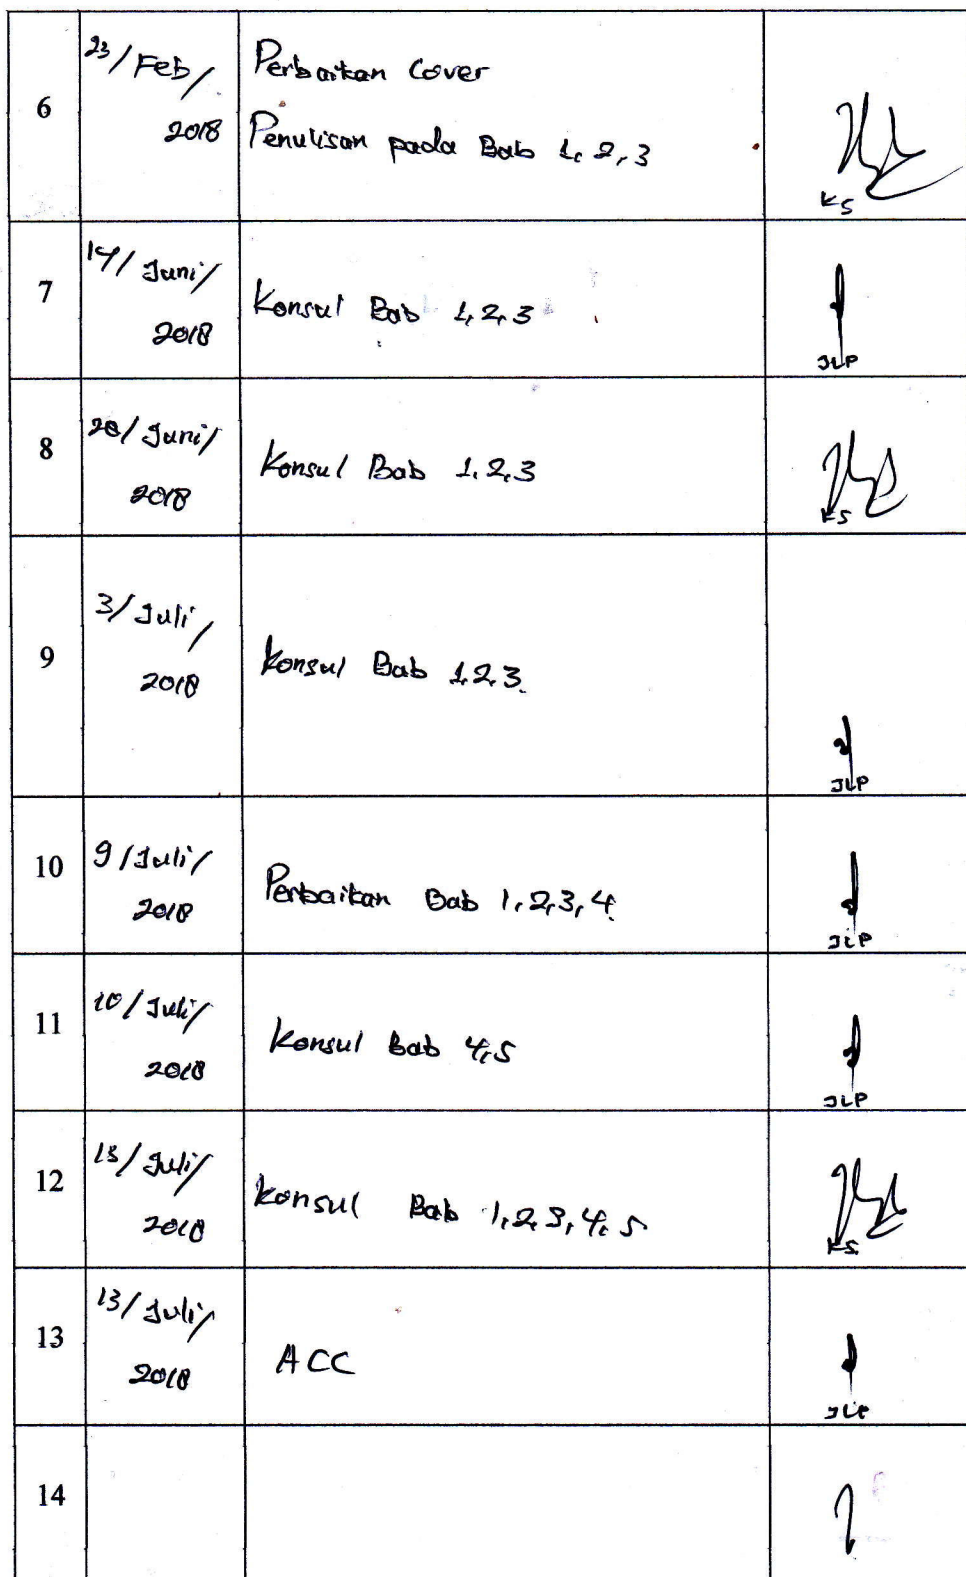 6
23/Feb/
2018
Perbaikan Cover
Penulisan pada Bab 1, 2, 3
KS
7
14/Juni/
2018
Konsul Bab 1, 2, 3
JLP
8
20/Juni/
2018
Konsul Bab 1, 2, 3
KS
9
3/Juli/
2018
Konsul Bab 1, 2, 3
JLP
10
9/Juli/
2018
Perbaikan Bab 1, 2, 3, 4
JLP
11
10/Juli/
2018
Konsul Bab 4, 5
JLP
12
/Juli/
2018
Konsul Bab 1, 2, 3, 4, 5
KS
13
13/Juli/
2018
ACC
JLP
14